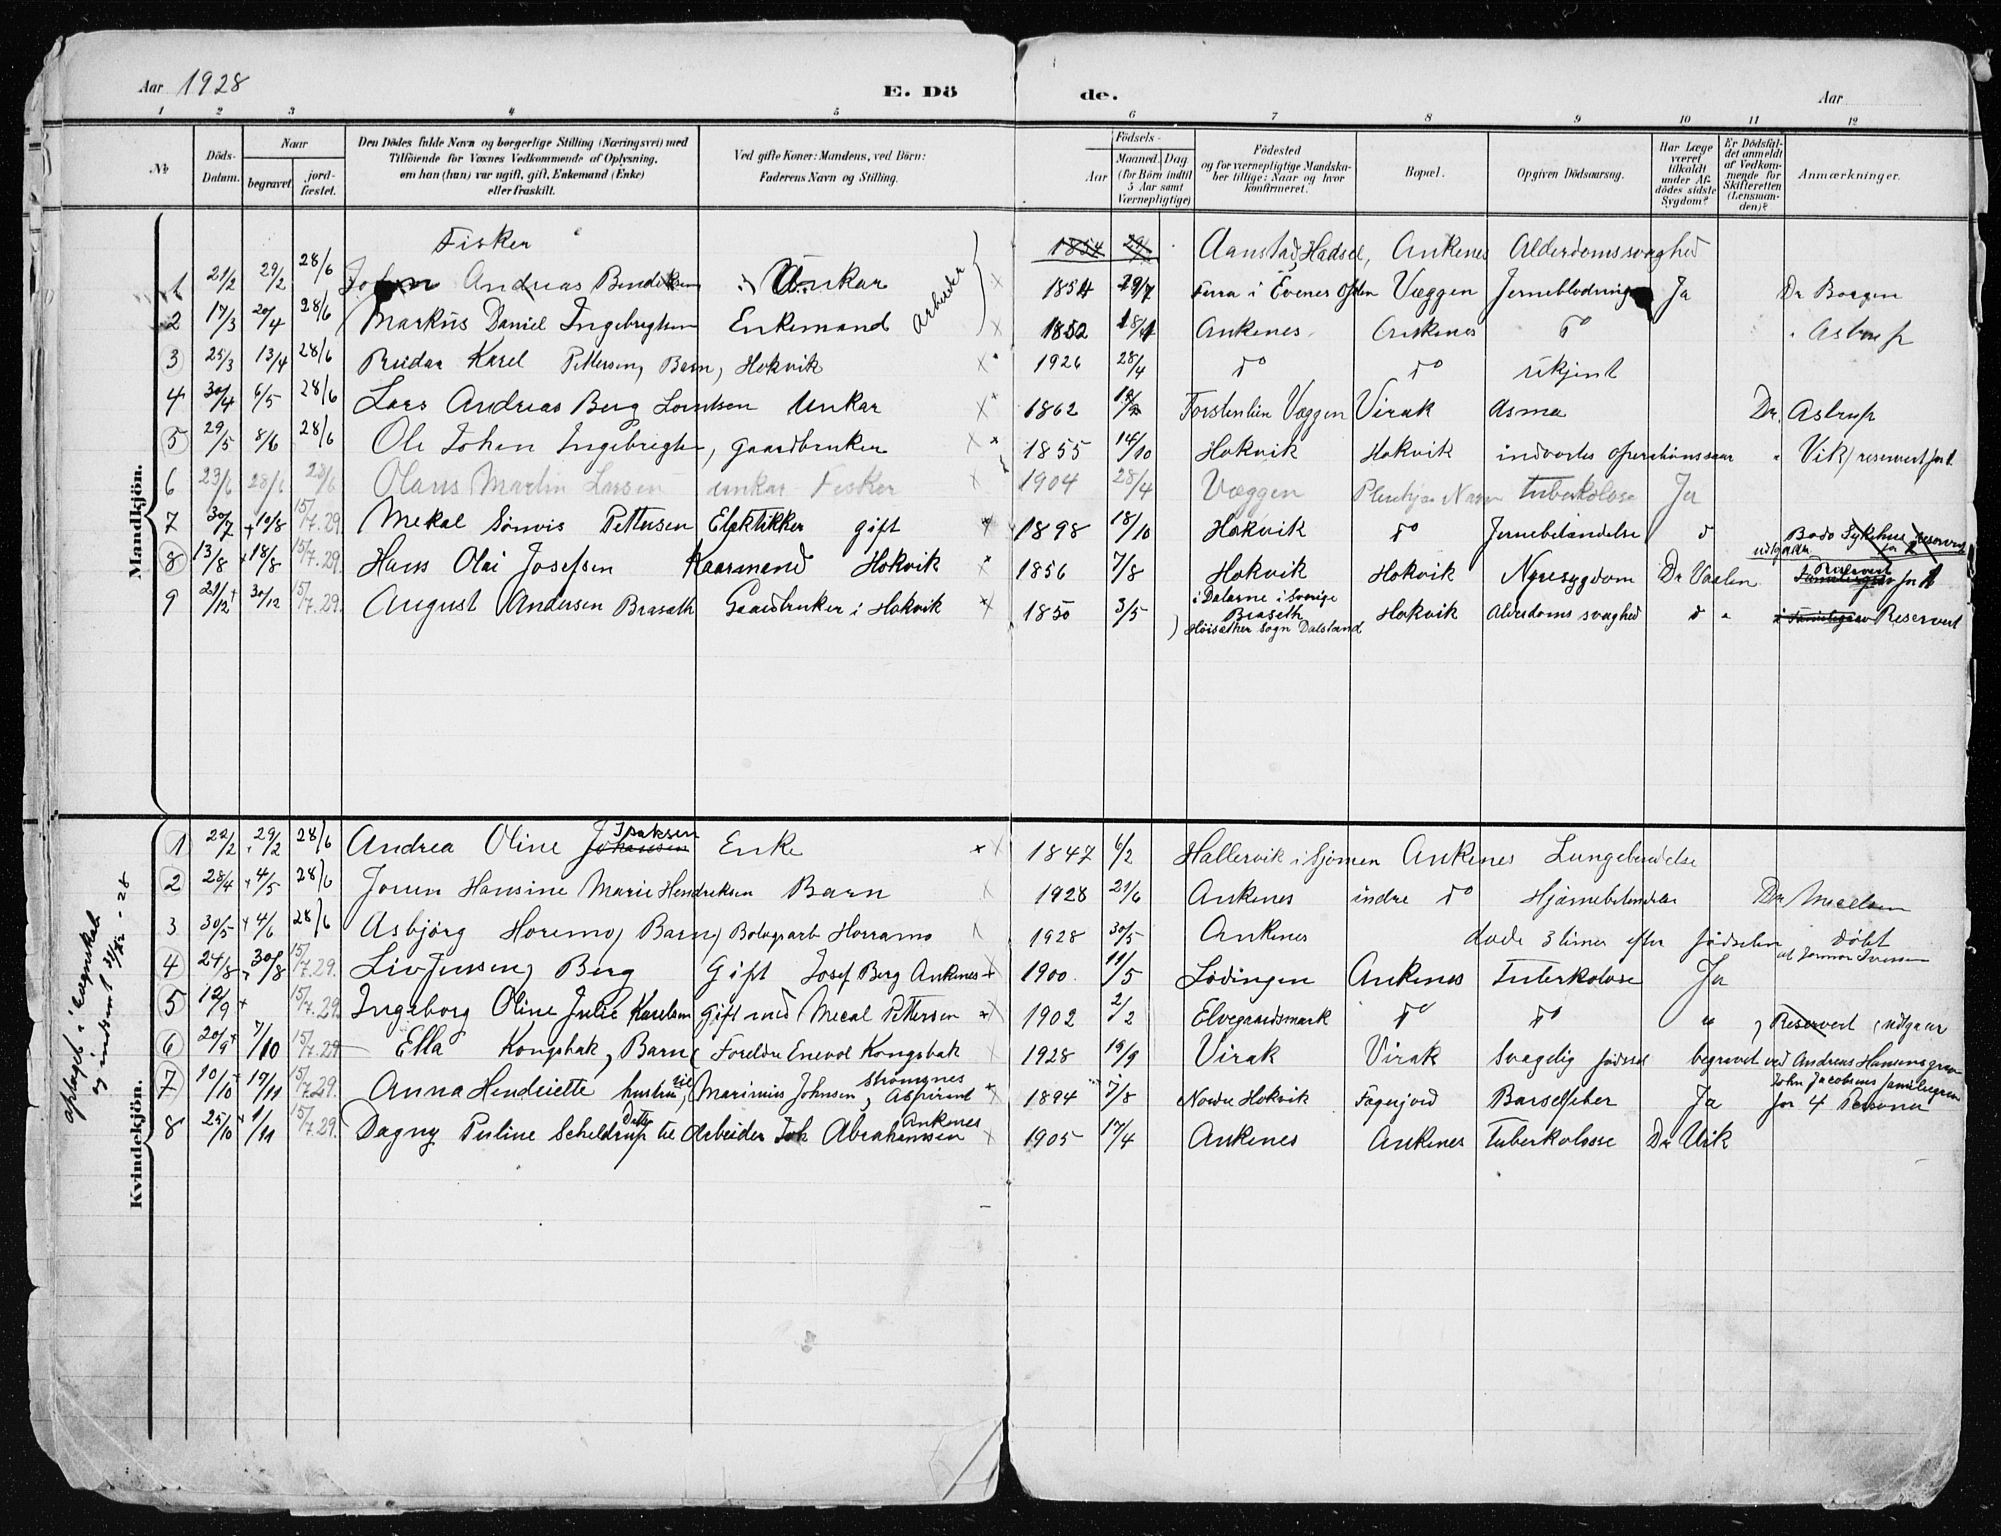 Aar 1928 E. Dö de. Aar
1 2 3 4 5 6 7 8 9 10 11 12
No. Döds-Datum. Naar begravet. jordfæstet. Den Dödes fulde Navn og borgerlige Stilling (Næringsvei) med Tilföiende for Voxnes Vedkommende af Oplysning, om han (hun) var ugift, gift, Enkemand (Enke) eller fraskilt. Ved gifte Koner: Mandens, ved Börn: Faderens Navn og Stilling. Födsels- Aar Maaned. Dag (for Börn indtil 5 Aar samt Værnepligtige) Födested og for værnepligtige Mandskaber tillige: Naar og hvor konfirmeret. Bopæl. Opgiven Dödsaarsag. Har Læge været tilkaldt under Afdödes sidste Sygdom? Er Dödsfaldet anmeldt af Vedkommende for Skifteretten (Lensmanden)? Anmærkninger.
Mandkjön.
Fisker 1854 29/7 Aanstad, Hadsel, Ankenes Alderdomssvaghed
1 21/2 29/2 28/6 Johan Andreas Bendiksen Unkar Arbeider 1854 29/7 Ferra i Evenes Ofoten Væggen Jerneblødning Ja Dr Borgen
2 17/3 20/4 28/6 Markus Daniel Ingebrigtsen Enkemand 1852 18/4 Ankenes Ankenes do " Astrup
3 25/3 13/4 28/6 Reidar Karel Pettersen, Barn, Hokvik 1926 28/4 do do ukjent
4 30/4 6/5 28/6 Lars Andreas Berg Lorntsen Unkar 1862 Forstenlien Væggen Virak Asma Dr. Astrup
5 29/5 8/6 28/6 Ole Johan Ingebrigtsen, gaardbruker 1855 14/10 Hokvik Hokvik indvortes operationssaar " Vik / reservert for 1.
6 23/6 28/6 28/6 Olaus Martin Larsen unkar Fisker 1904 28/4 Væggen Pleiehjem Narvik Tuberkolose Ja
7 30/7 + 10/8 15/7.29. Mekal Sönvis Pettersen Elektikker gift 1898 18/10 Hokvik do Jernebetændelse d Bodø Sykehus Reservert for 2
8 13/8 + 18/8 15/7.29. Hans Olai Josefsen Kaarmand Hokvik 1856 7/8 Hokvik Hokvik Nyresygdom Dr Vaalen udgaar Reservert Familiegrav for 1
9 21/12 + 30/12 15/7.29. August Andersen Braseth Gaardbruker i Hokvik 1850 3/5 i Dalarne i Sverige Braseth Høisæther Sogn Dalsland Hokvik Alderdoms svaghed d " i Familiegrav Reservert
Kvindekjön.
optaget i regnskab og indsent 31/12 - 28
1 22/2 29/2 28/6 Andrea Oline Johansen Isaksen Enke 1847 6/2 Hallervik i Sjømen Ankenes Lungebetendelse
2 28/4 + 4/5 28/6 Jorun Hansine Marie Hendriksen Barn 1928 21/6 Ankenes indre do Hjernebetendelse Dr
3 30/5 + 4/6 28/6 Asbjörg Horemo, Barn, Bolagsarb Horramo 1928 30/5 Ankenes døde 3 timer efter fødselen Døbt
4 24/8 30/8 15/7.29. Liv Jensen, Berg Gift Josef Berg Ankenes 1900. 11/5 Lødingen Ankenes Tuberkolose Ja
5 12/9 + 15/7.29. Ingeborg Oline Julie Karelsen Gift med Mecal Pettersen 1902 2/2 Elvegaardsmark do do " , Reservert, udgaar
6 20/9 + 7/10 15/7.29 Ella Kongsbak, Barn, Foreldre Enevol Kongsbak 1928 19/9 Virak Virak Svagelig fødsel begravet ved Andreas Hansens grav
7 10/10 + 17/11 15/7.29. Anna Hendriette hustru til, Marinius Johnsen, Strömsnes Aspirant 1894 7/8 Nordre Hokvik Fagerjord Barselfeber Ja John Jacobsens familiegrav for 4 Personer
8 25/10 + 1/11 15/7.29. Dagny Petline Scheldrup Datter til Arbeider Joh Abrahamsen Ankenes 1905 17/4 Ankenes Ankenes Tuberkolose Dr Vik